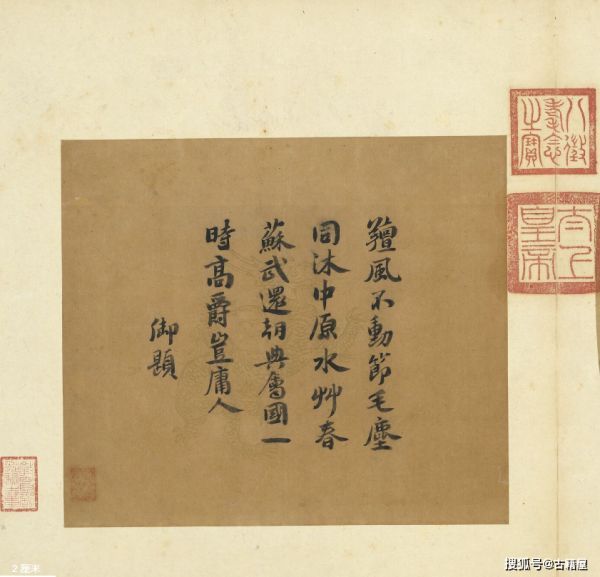 八徵耄念之寶
太上皇帝
羶風不動節毛塵
同沐中原水艸春
蘇武還朝典屬國一
時高爵豈庸人
御題
2厘米
搜狐号@古籍屋